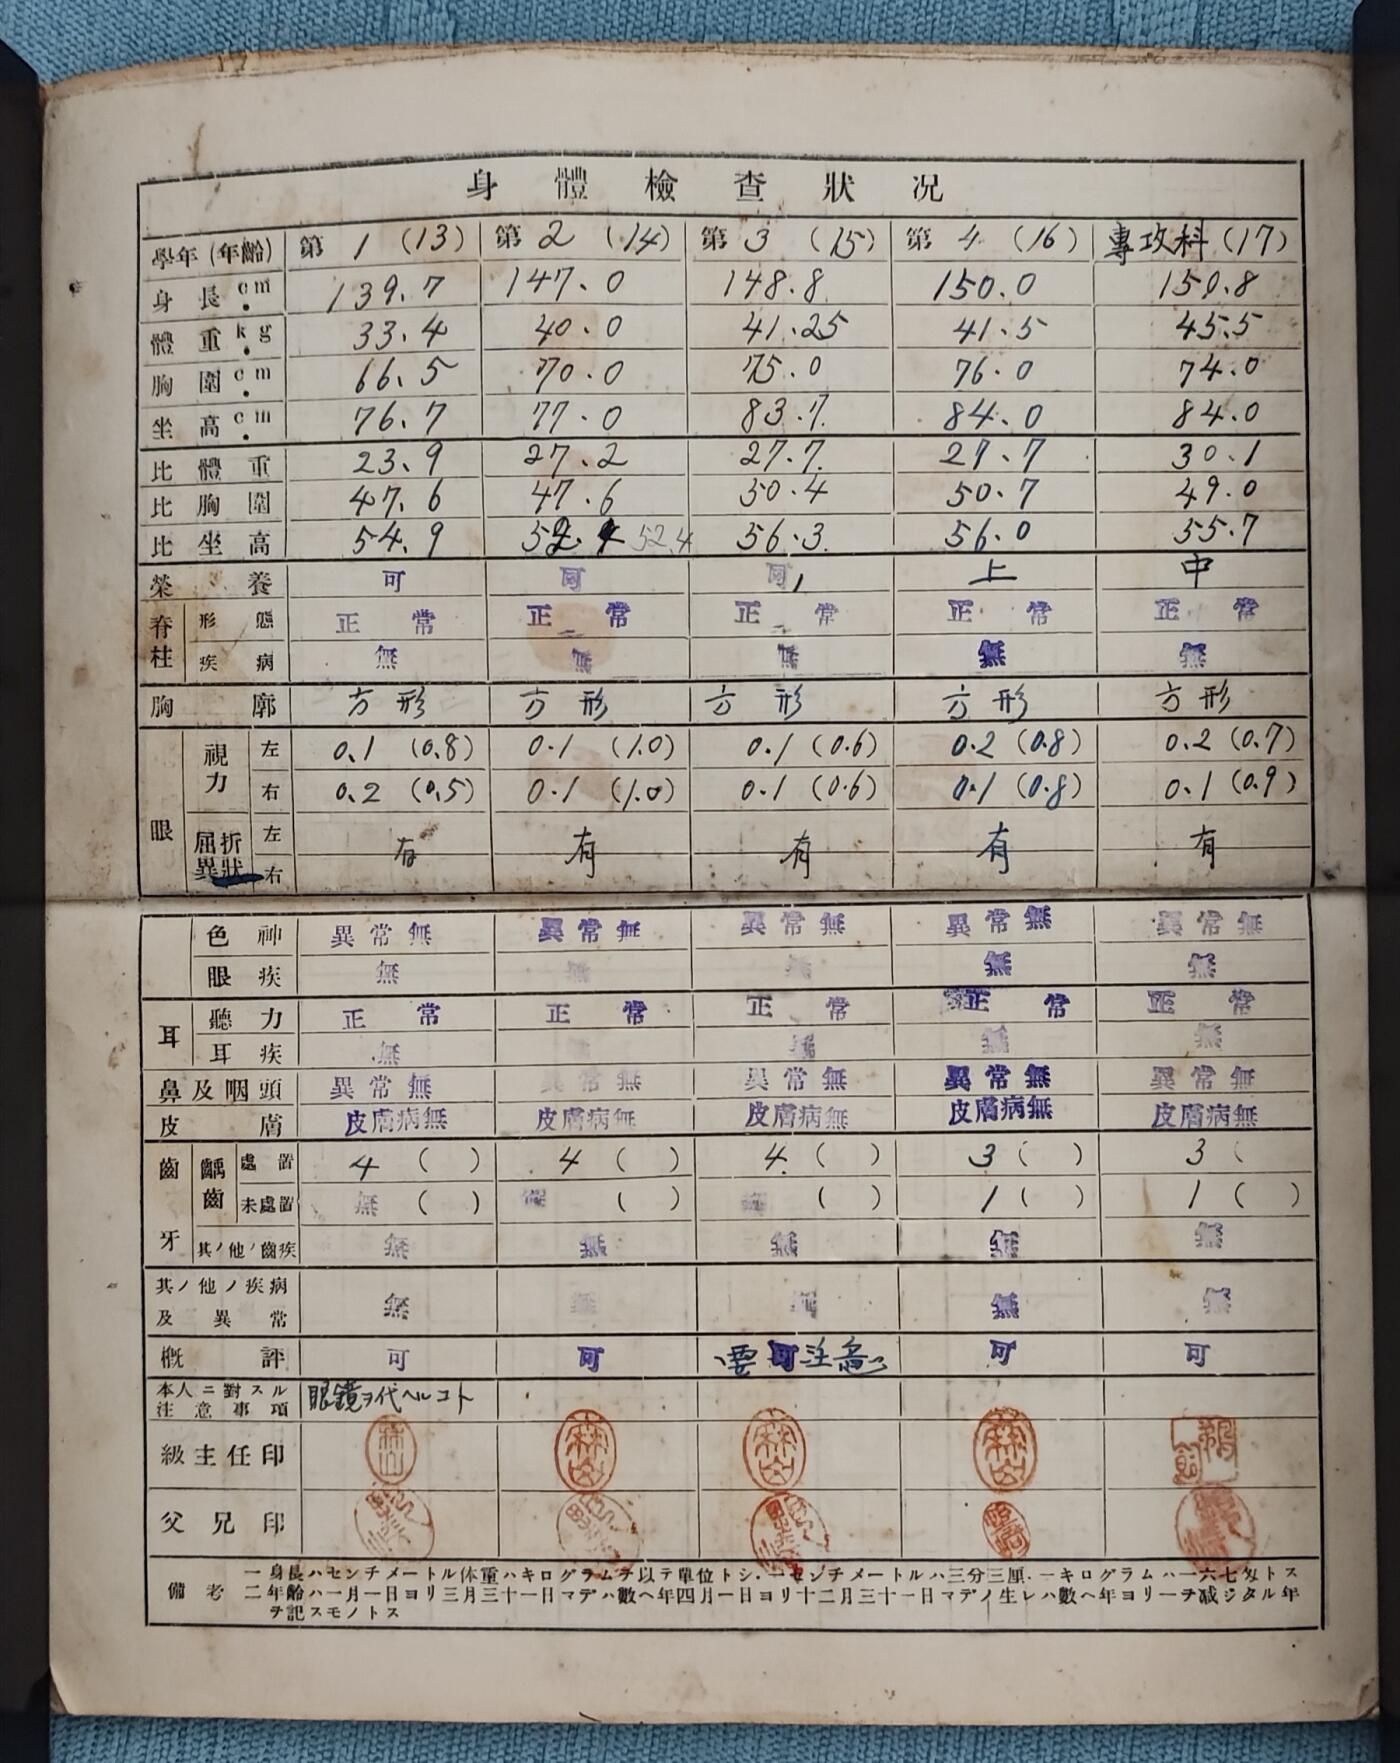 身體檢査狀況
學年(年齡) 第1(13) 第2(14) 第3(15) 第4(16) 專攻科(17)
身長cm 139.7 147.0 148.8 150.0 150.8
體重kg 33.4 40.0 41.25 41.5 45.5
胸圍cm 66.5 70.0 75.0 76.0 74.0
坐高cm 76.7 77.0 83.7 84.0 84.0
比體重 23.9 27.2 27.7 27.7 30.1
比胸圍 47.6 47.6 50.4 50.7 49.0
比坐高 54.9 52.4 52.4 56.3 56.0 55.7
榮養 可 可 可 上 中
脊柱 形態 正常 正常 正常 正常 正常
疾病 無 無 無 無 無
胸廓 方形 方形 方形 方形 方形
眼 視力 左 0.1(0.8) 0.1(1.0) 0.1(0.6) 0.2(0.8) 0.2(0.7)
右 0.2(0.5) 0.1(1.0) 0.1(0.6) 0.1(0.8) 0.1(0.9)
屈折異狀 左 右 有 有 有 有 有
色神 異常無 異常無 異常無 異常無 異常無
眼疾 無 無 無 無 無
耳 聽力 正常 正常 正常 正常 正常
耳疾 無 無 無 無
鼻及咽頭 異常無 異常無 異常無 異常無 異常無
皮膚 皮膚病無 皮膚病無 皮膚病無 皮膚病無 皮膚病無
齒牙 齲齒 處置 4( ) 4( ) 4( ) 3( ) 3(
未處置 無( ) 無( ) 無( ) 1( ) 1( )
其ノ他ノ齒疾 無 無 無 無 無
其ノ他ノ疾病及異常 無 無 無 無 無
概評 可 可 要可注意 可 可
本人ニ對スル注意事項 眼鏡ヲ代ヘルコト
級主任印
父兄印
備考 一 身長ハセンチメートル体重ハキログラムヲ以テ單位トシ・一センチメートルハ三分三厘・一キログラムハ二六七匁トス
二 年齡ハ一月一日ヨリ三月三十一日マデハ數ヘ年四月一日ヨリ十二月三十一日マデノ生レハ數ヘ年ヨリ一ヲ減ジタル年
ヲ記スモノトス